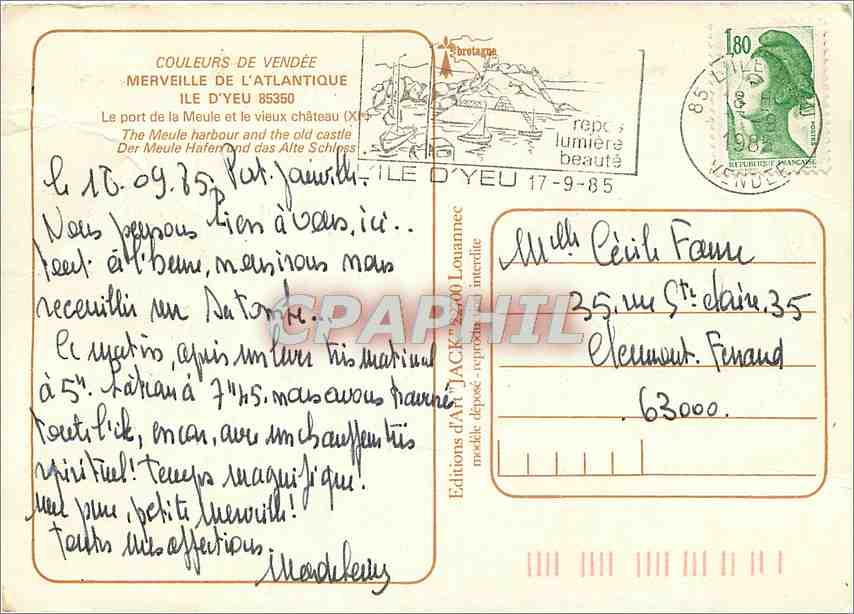 COULEURS DE VENDÉE
MERVEILLE DE L'ATLANTIQUE
ILE D'YEU 85350
Le port de la Meule et le vieux château (XI
The Meule harbour and the old castle
Der Meule Hafen und das Alte Schloss
bretagne
repos
lumière
beauté
L'ILE D'YEU 17-9-85
85 L'ILE
VENDEE
1,80
POSTES
REPUBLIQUE FRANÇAISE
le 18.09.85. Port-Joinville.
Nous pensons bien à vous, ici...
tout à l'heure, nous irons nous
recueillir sur sa tombe...
Ce matin, après un lever très matinal
à 5h, bateau à 7h45, nous avons traversé
toute l'île, en car, avec un chauffeur très
spirituel! temps magnifique!
une pure petite merveille!
toutes mes affections.
Editions d'Art "JACK" 22700 Louannec
modèle déposé - reproduction interdite
Melle Cécile Faure
35. rue Ste Claire. 35
Clermont. Ferrand
63000.
CPAPHIL